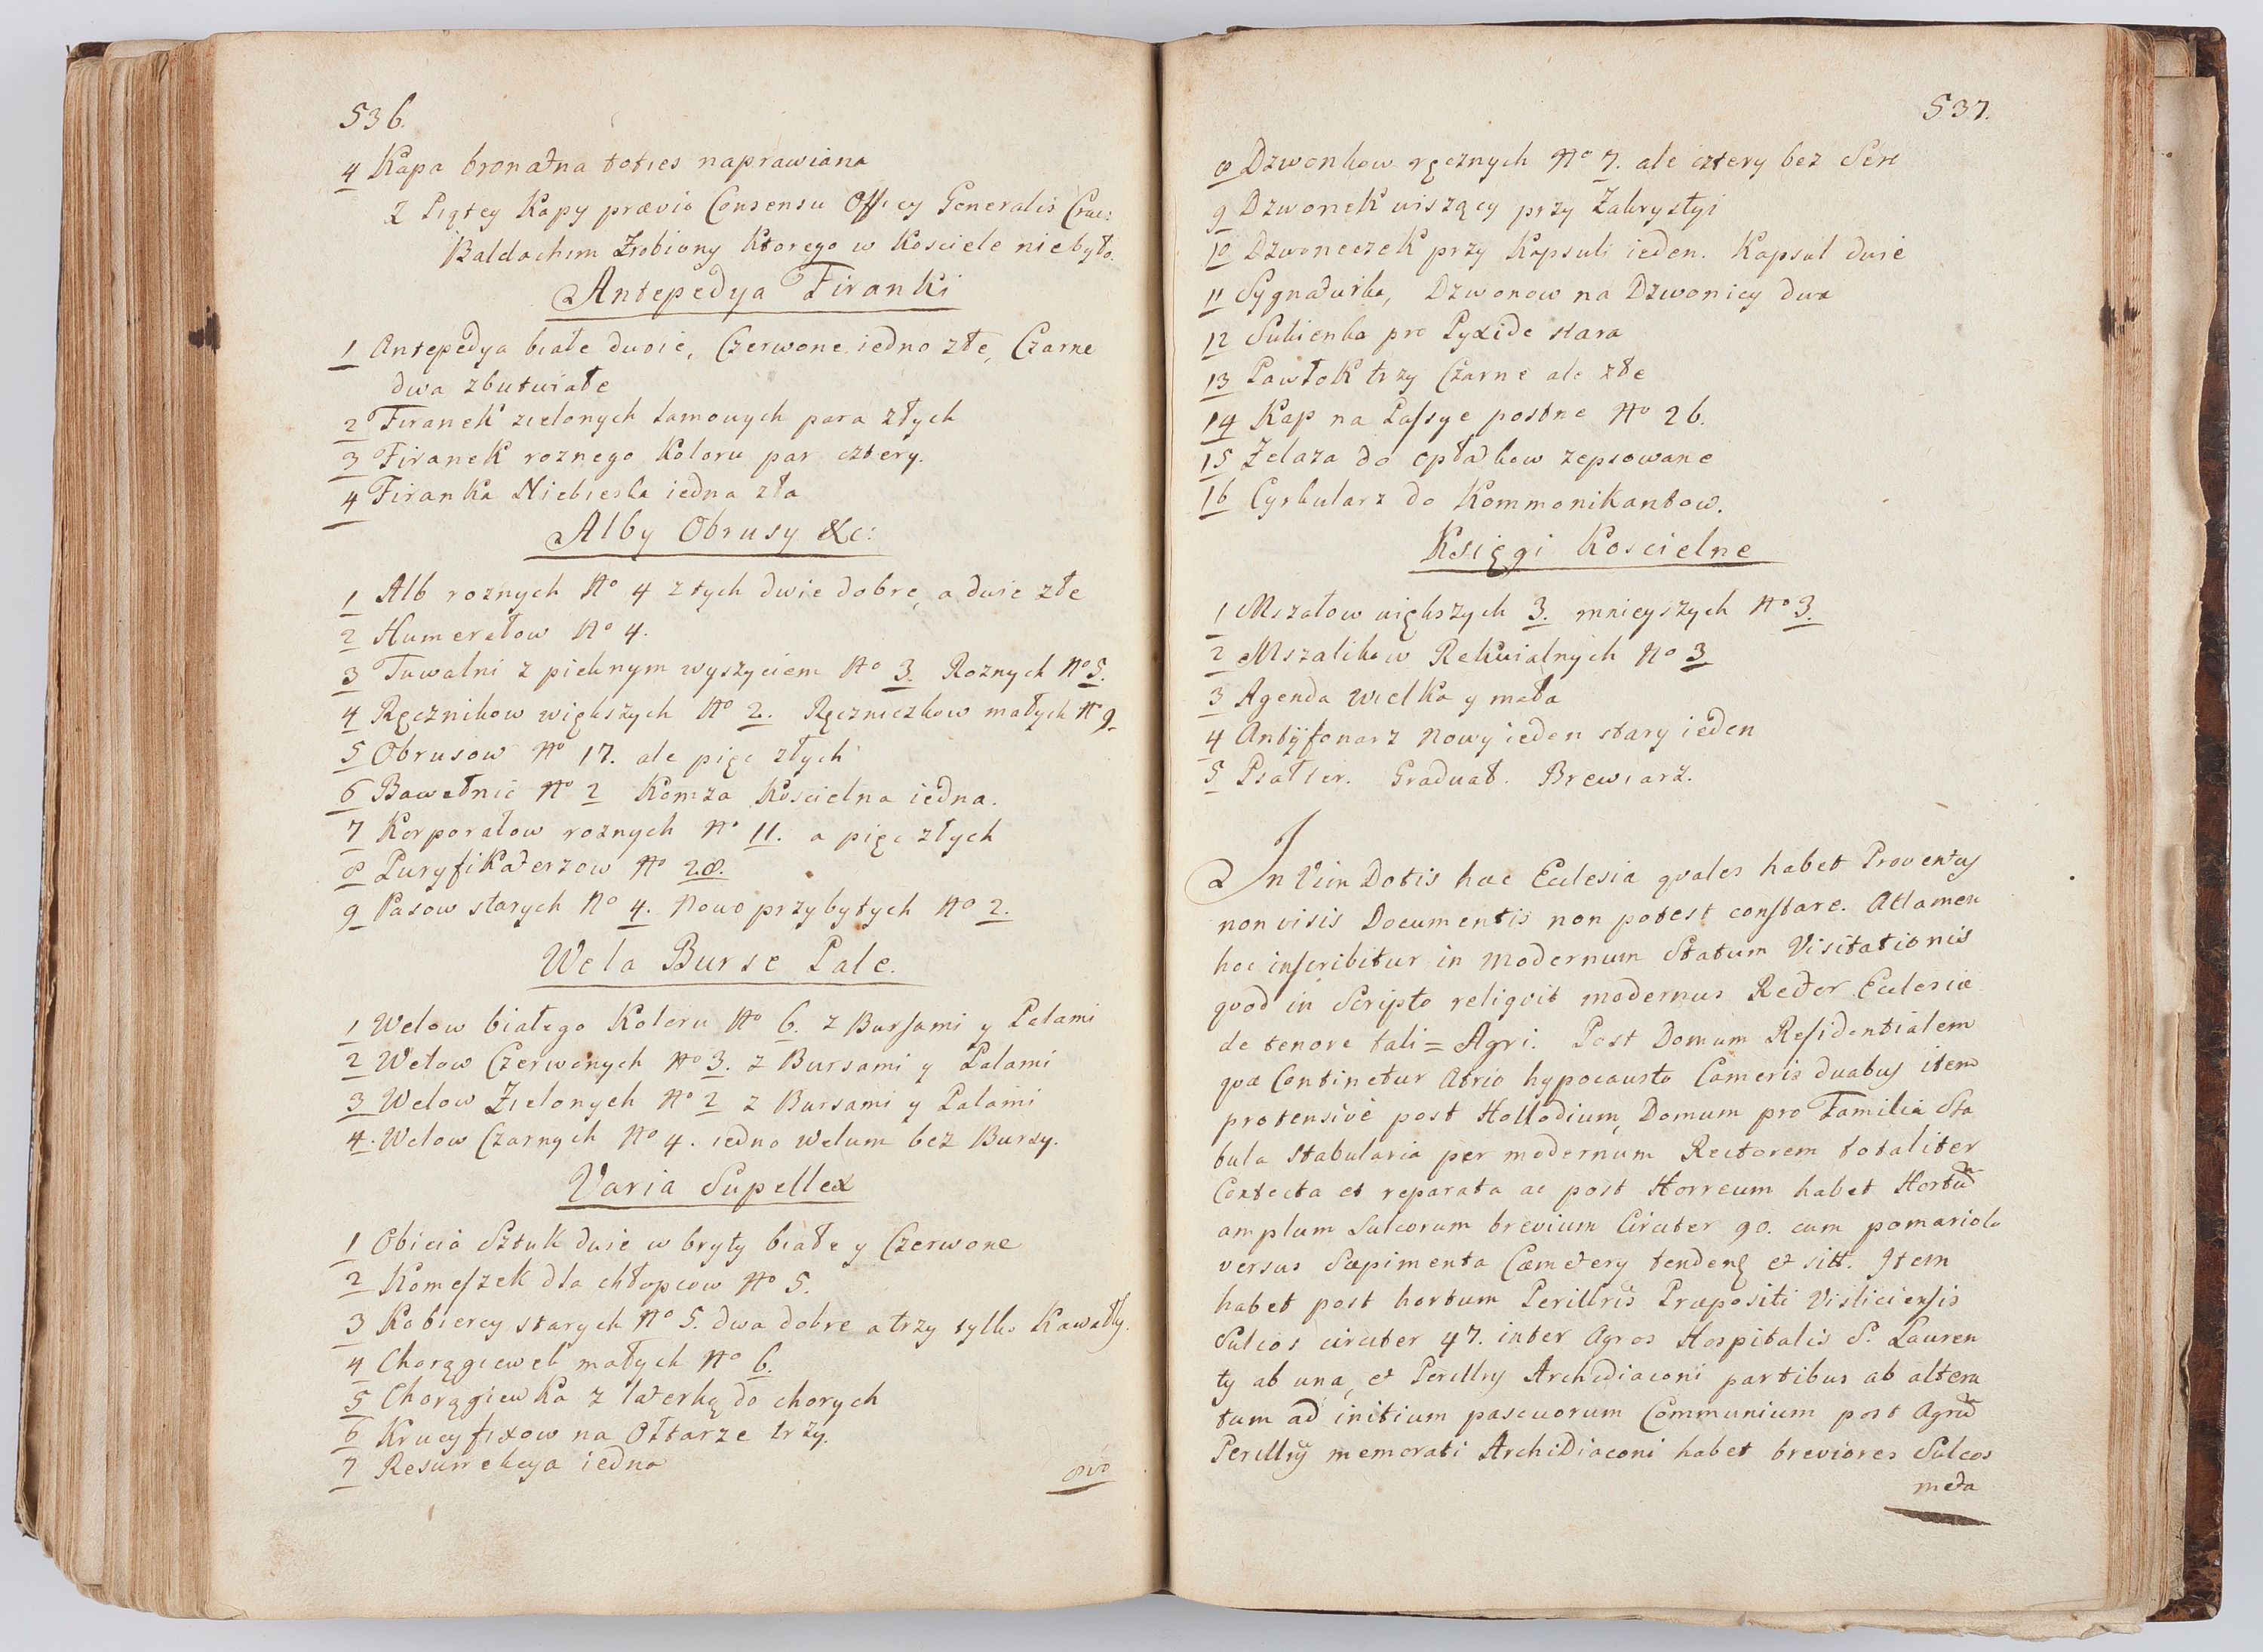 536.
4 Kapa bronatna toties naprawiana
Z Piątey Kapy prævio Consensu Officy Generalis Crac:
Baldachim Zrobiony Ktorego w Kosciele niebyło.
Antepedya Firanki
1 Antepedya białe dwoie, Czerwone iedno złe, Czarne
dwa zbutwiałe
2 Firanek zielonych lamowych para złych
3 Firanek roznego Koloru par cztery.
4 Firanka Niebieska iedna zła
Alby Obrusy &c:
1 Alb roznych No 4 z tych dwie dobre, a dwie złe
2 Humerałow No 4.
3 Tuwalni z pieknym wyszyciem No 3. Roznych No 5.
4 Ręcznikow większych No 2. Ręczniczkow małych No 9
5 Obrusow No 17. ale pięc złych
6 Bawełnic No 2 Komza Koscielna iedna.
7 Korporałow roznych No 11. a pięc złych
8 Puryfikaterzow No 28.
9 Pasow starych No 4. Nowo przybyłych No 2.
Wela Burse Pale.
1 Welow białego Koloru No 6. z Bursami y Palami
2 Welow Czerwonych No 3. z Bursami y Palami
3 Welow Zielonych No 2 z Bursami y Palami
4. Welow Czarnych No 4. iedno welum bez Bursy.
Varia Supellex
1 Obicia Sztuk dwie w bryty białe y Czerwone
2 Komeszek dla chłopcow No 5.
3 Kobiercy starych No 5. dwa dobre a trzy tylko Kawałky.
4 Chorągiewek małych No 6.
5 Chorągiewka z laterką do chorych
6 Krucyfixow na Ołtarze trzy.
7 Resurrekcya iedna
537.
8 Dzwonkow ręcznych No 7. ale cztery bez Serc
9 Dzwonek wiszący przy Zakrystyi
10 Dzwoneczek przy Kapsuli ieden. Kapsul dwie
11 Sygnaturka, Dzwonow na Dzwonicy dwa
12 Sukienka pro Pyxide stara
13 Pawłok trzy Czarne ale złe
14 Kap na Passye postne No 26.
15 Żelaza do opłatkow zepsowane
16 Cyrkularz do Kommonikantow.
Księgi Koscielne
1 Mszałow większych 3. mnieyszych No 3.
2 Mszalikow Rekwialnych No 3
3 Agenda wielka y mała
4 Antyfonarz Nowy ieden stary ieden
5 Psałter. Graduał. Brewiarz.
In Vim Dotis hæc Ecclesia qvales habet Proventus
non visis Documentis non potest constare. Attamen
hoc inscribitur in modernum Statum Visitationis
qvod in Scripto reliqvit modernus Rector Ecclesiæ
de tenore tali = Agri. Post Domum Residentialem
qvæ Continetur Atrio hypocausto Cameris duabus item
protensive post Hollodium, Domum pro Familia Sta
bula Stabularia per modernum Rectorem totaliter
Contecta et reparata ac post Horreum habet Hortum
amplum Sulcorum brevium Circiter 90. cum pomariolo
versus Sæpimenta Cæmetery tenden et sitt. Item
habet post hortum Perillris Præpositi Visliciensis
Sulcos circiter 47. inter Agros Hospitalis S. Lauren
ty ab una, et Perillris Archidiaconi partibus ab altera
tum ad initium pascuorum Communium post Agrum
Perillris memorati ArchiDiaconi habet breviores Sulcos
meta